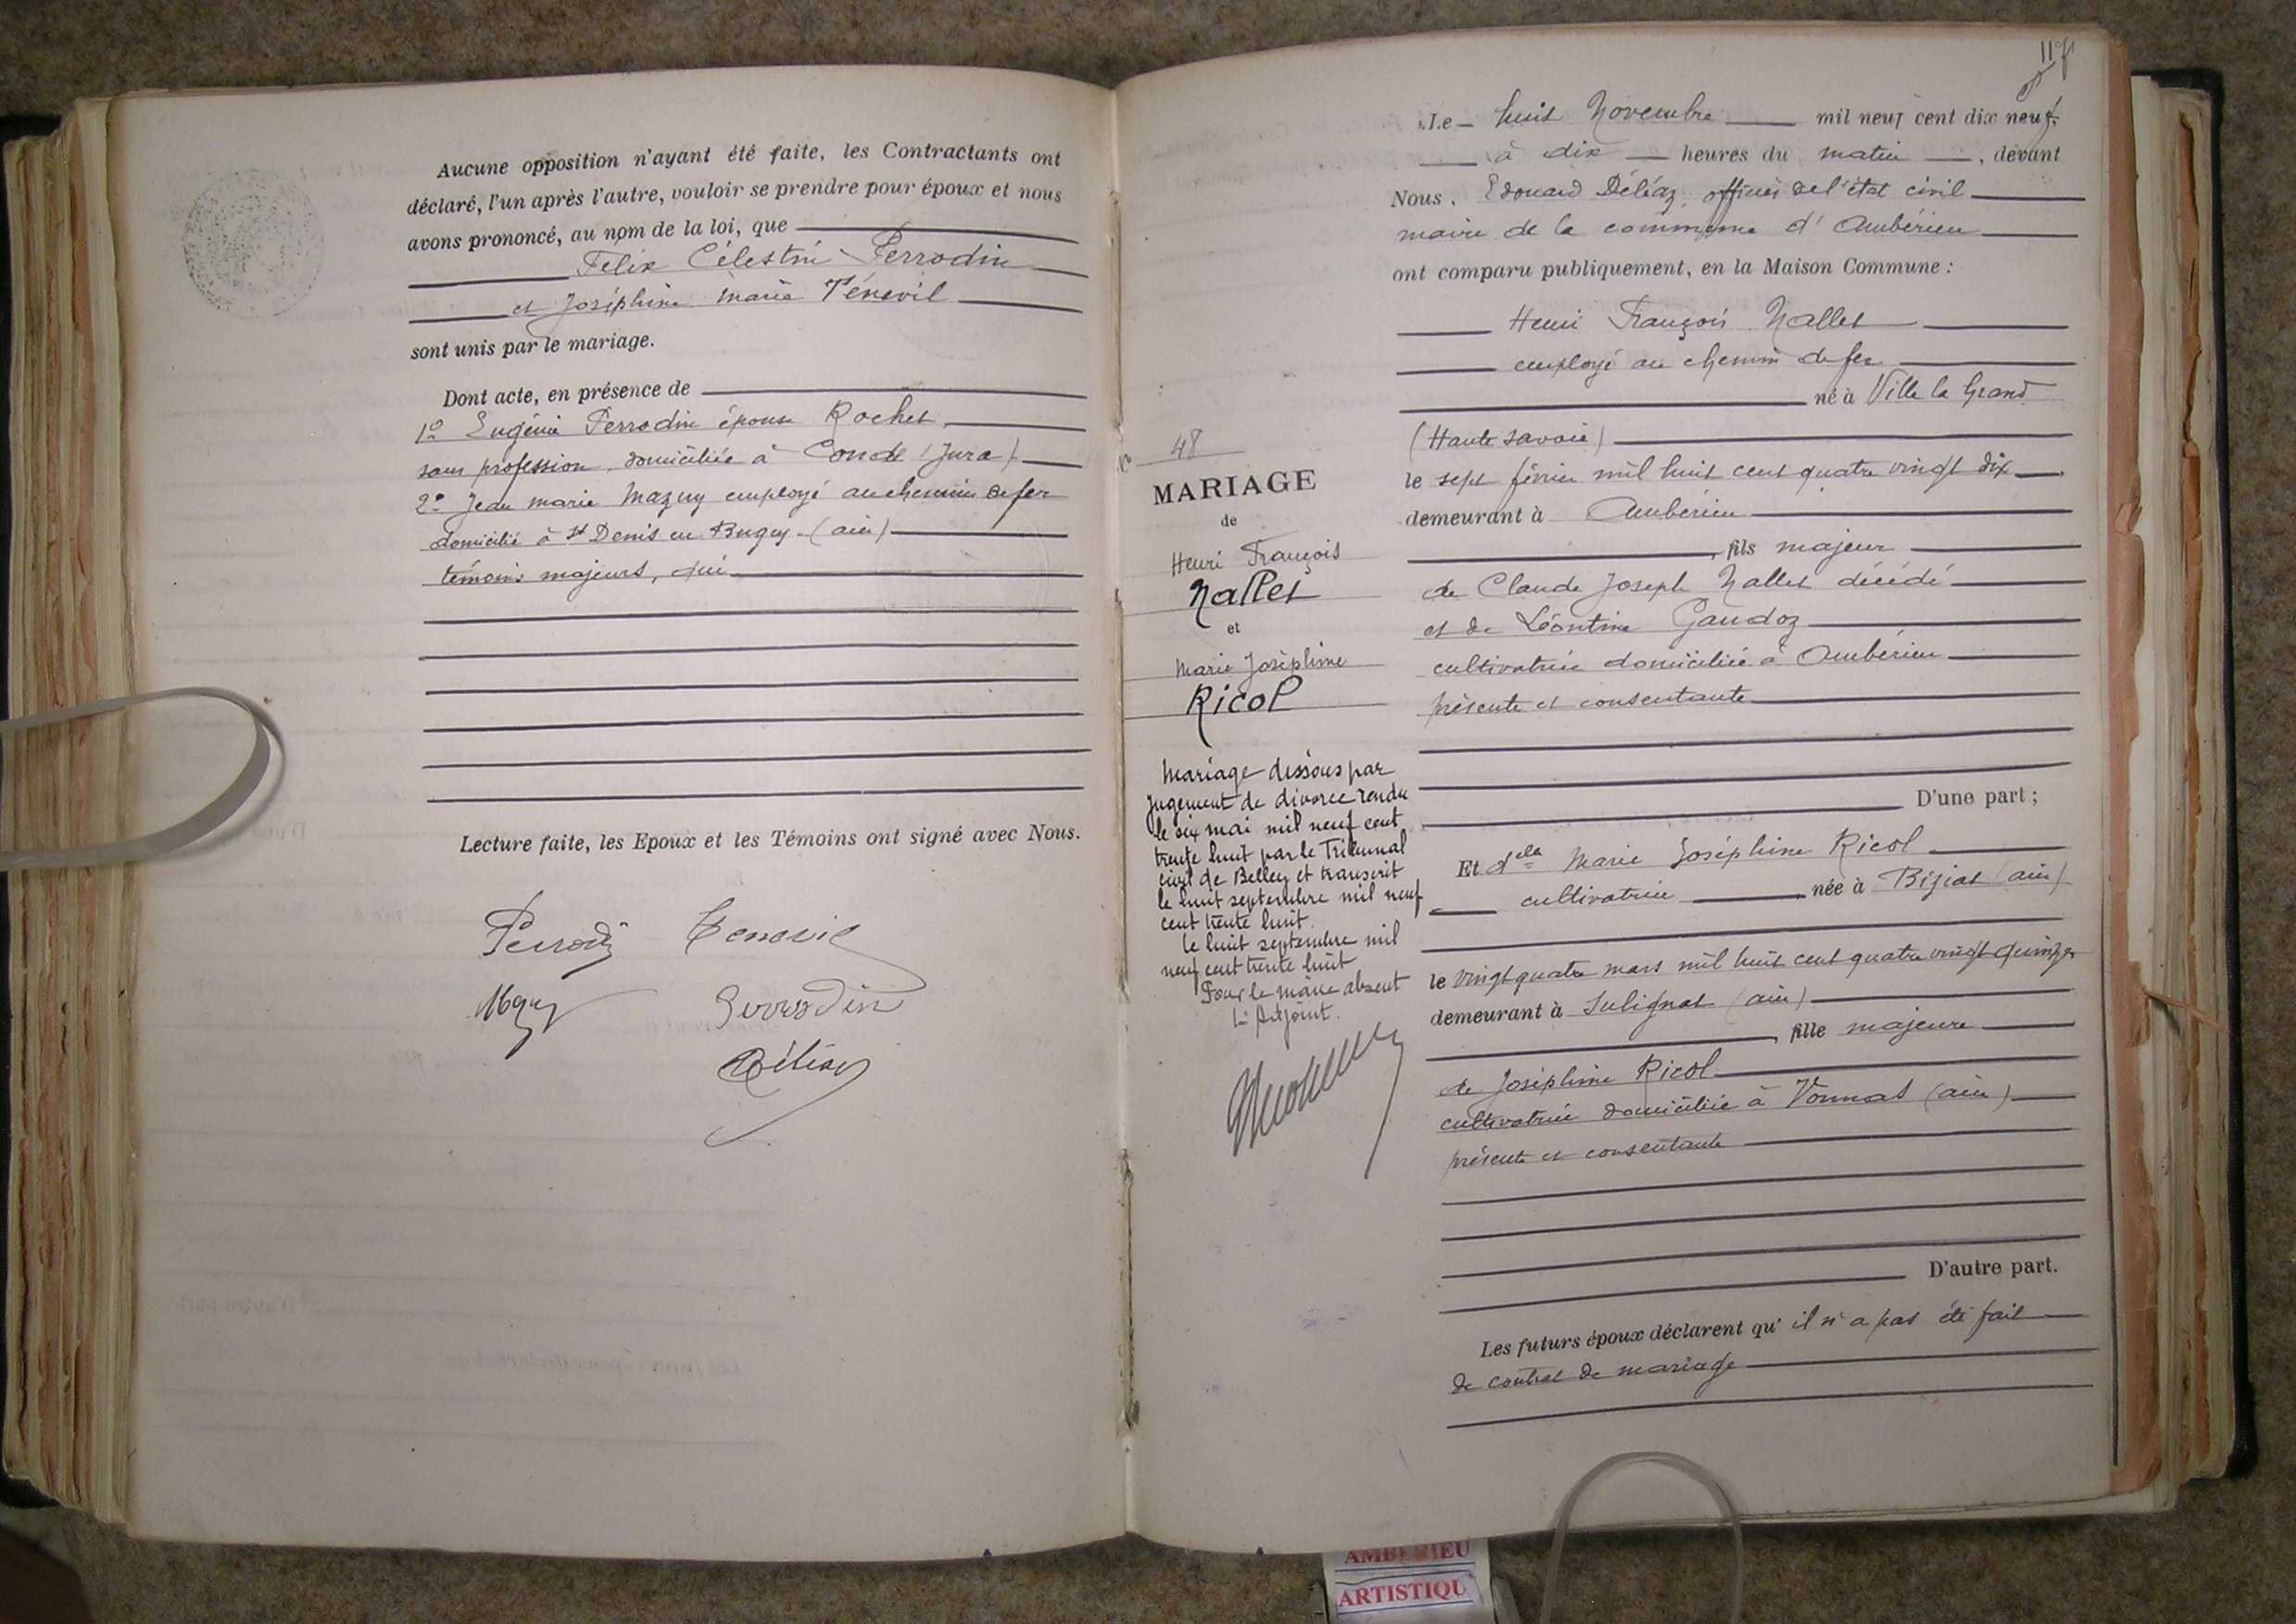 Aucune opposition n'ayant été faite, les Contractants ont
déclaré, l'un après l'autre, vouloir se prendre pour époux et nous
avons prononcé, au nom de la loi, que
Félix Célestin Perrodin
et Joséphine Marie Ténevil
sont unis par le mariage.
Dont acte, en présence de
1º Eugénie Perrodin épouse Rochet,
sans profession, domiciliée à Conde (Jura)
2º Jean Marie Mazuy employé au chemin de fer
domicilié à St Denis en Bugey (ain)
témoins majeurs, qui
Lecture faite, les Epoux et les Témoins ont signé avec Nous.
Perrodin Tenevil
Mazuy Perrodin
Déliaz
Le huit Novembre mil neuf cent dix neuf,
à dix heures du matin, devant
Nous, Edouard Déléaz, officier de l'état civil
maire de la commune d'Ambérieu
ont comparu publiquement, en la Maison Commune :
Henri François Nallet
employé au chemin de fer
né à Ville la Grand
(Haute savoie)
le sept février mil huit cent quatre vingt dix
demeurant à Ambérieu
, fils majeur
de Claude Joseph Nallet décédé
et de Léontine Gaudoz
cultivatrice domiciliée à Ambérieu
présente et consentante
D'une part ;
Et delle Marie Joséphine Ricol
cultivatrice née à Biziat (ain)
le vingt quatre mars mil huit cent quatre vingt quinze
demeurant à Sulignat (ain)
, fille majeure
de Joséphine Ricol
cultivatrice domiciliée à Vonnas (ain)
présente et consentante
D'autre part.
Les futurs époux déclarent qu'il n'a pas été fait
de contrat de mariage
48
MARIAGE
de
Henri François
Nallet
et
Marie Joséphine
Ricol
Mariage dissous par
jugement de divorce rendu
le six mai mil neuf cent
trente huit par le Tribunal
civil de Belley et transcrit
le huit septembre mil neuf
cent trente huit.
Le huit septembre mil
neuf cent trente huit
Pour le maire absent
L'Adjoint.
AMBERIEU
ARTISTIQU